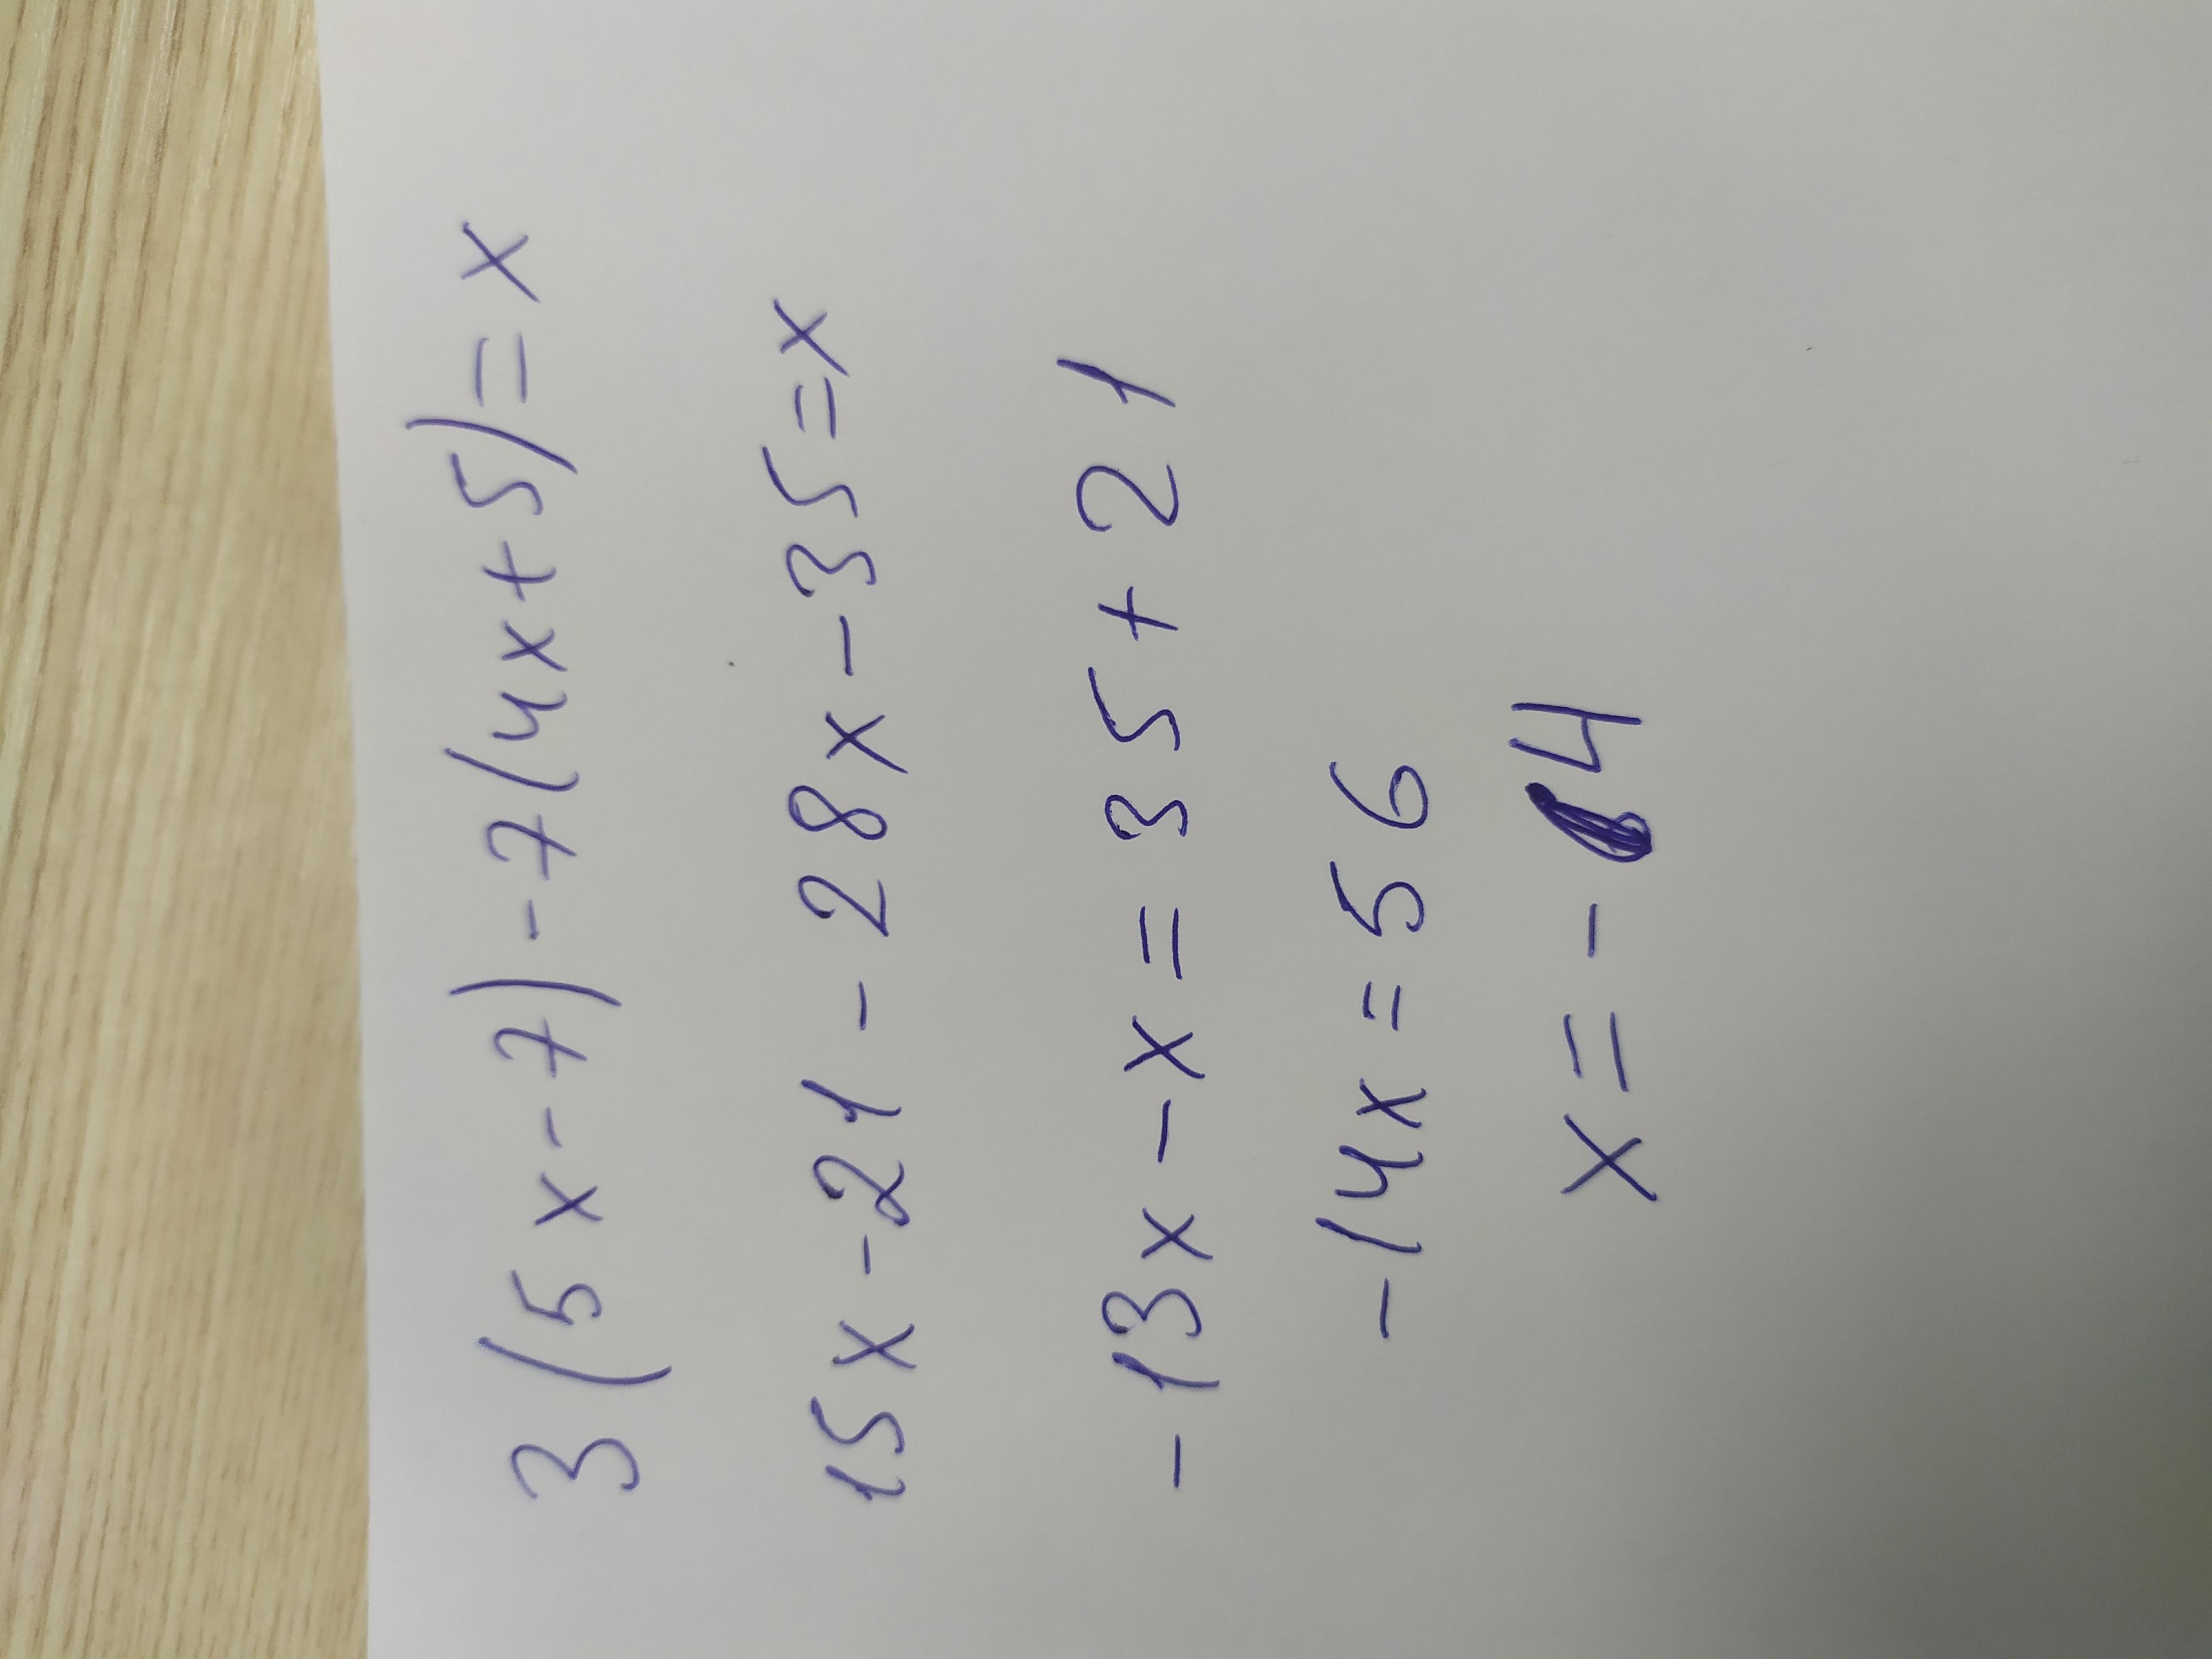 3(5x-7)-7(4x+5)=x
15x-21-28x-35=x
-13x-x=35+21
-14x=56
x=-4